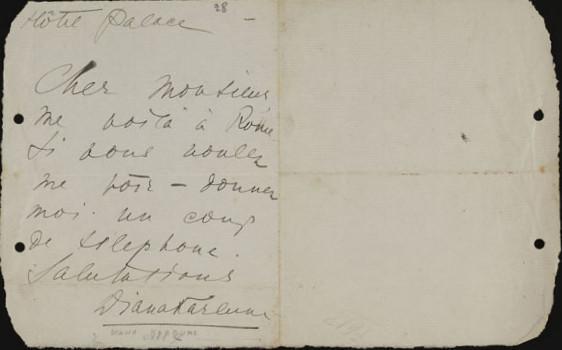 Hôtel Palace 28
Cher Monsieur
me voilà à Rome
Si vous voulez
me voir – donnez
moi un coup
de téléphone.
Salutations
Diana Karenne